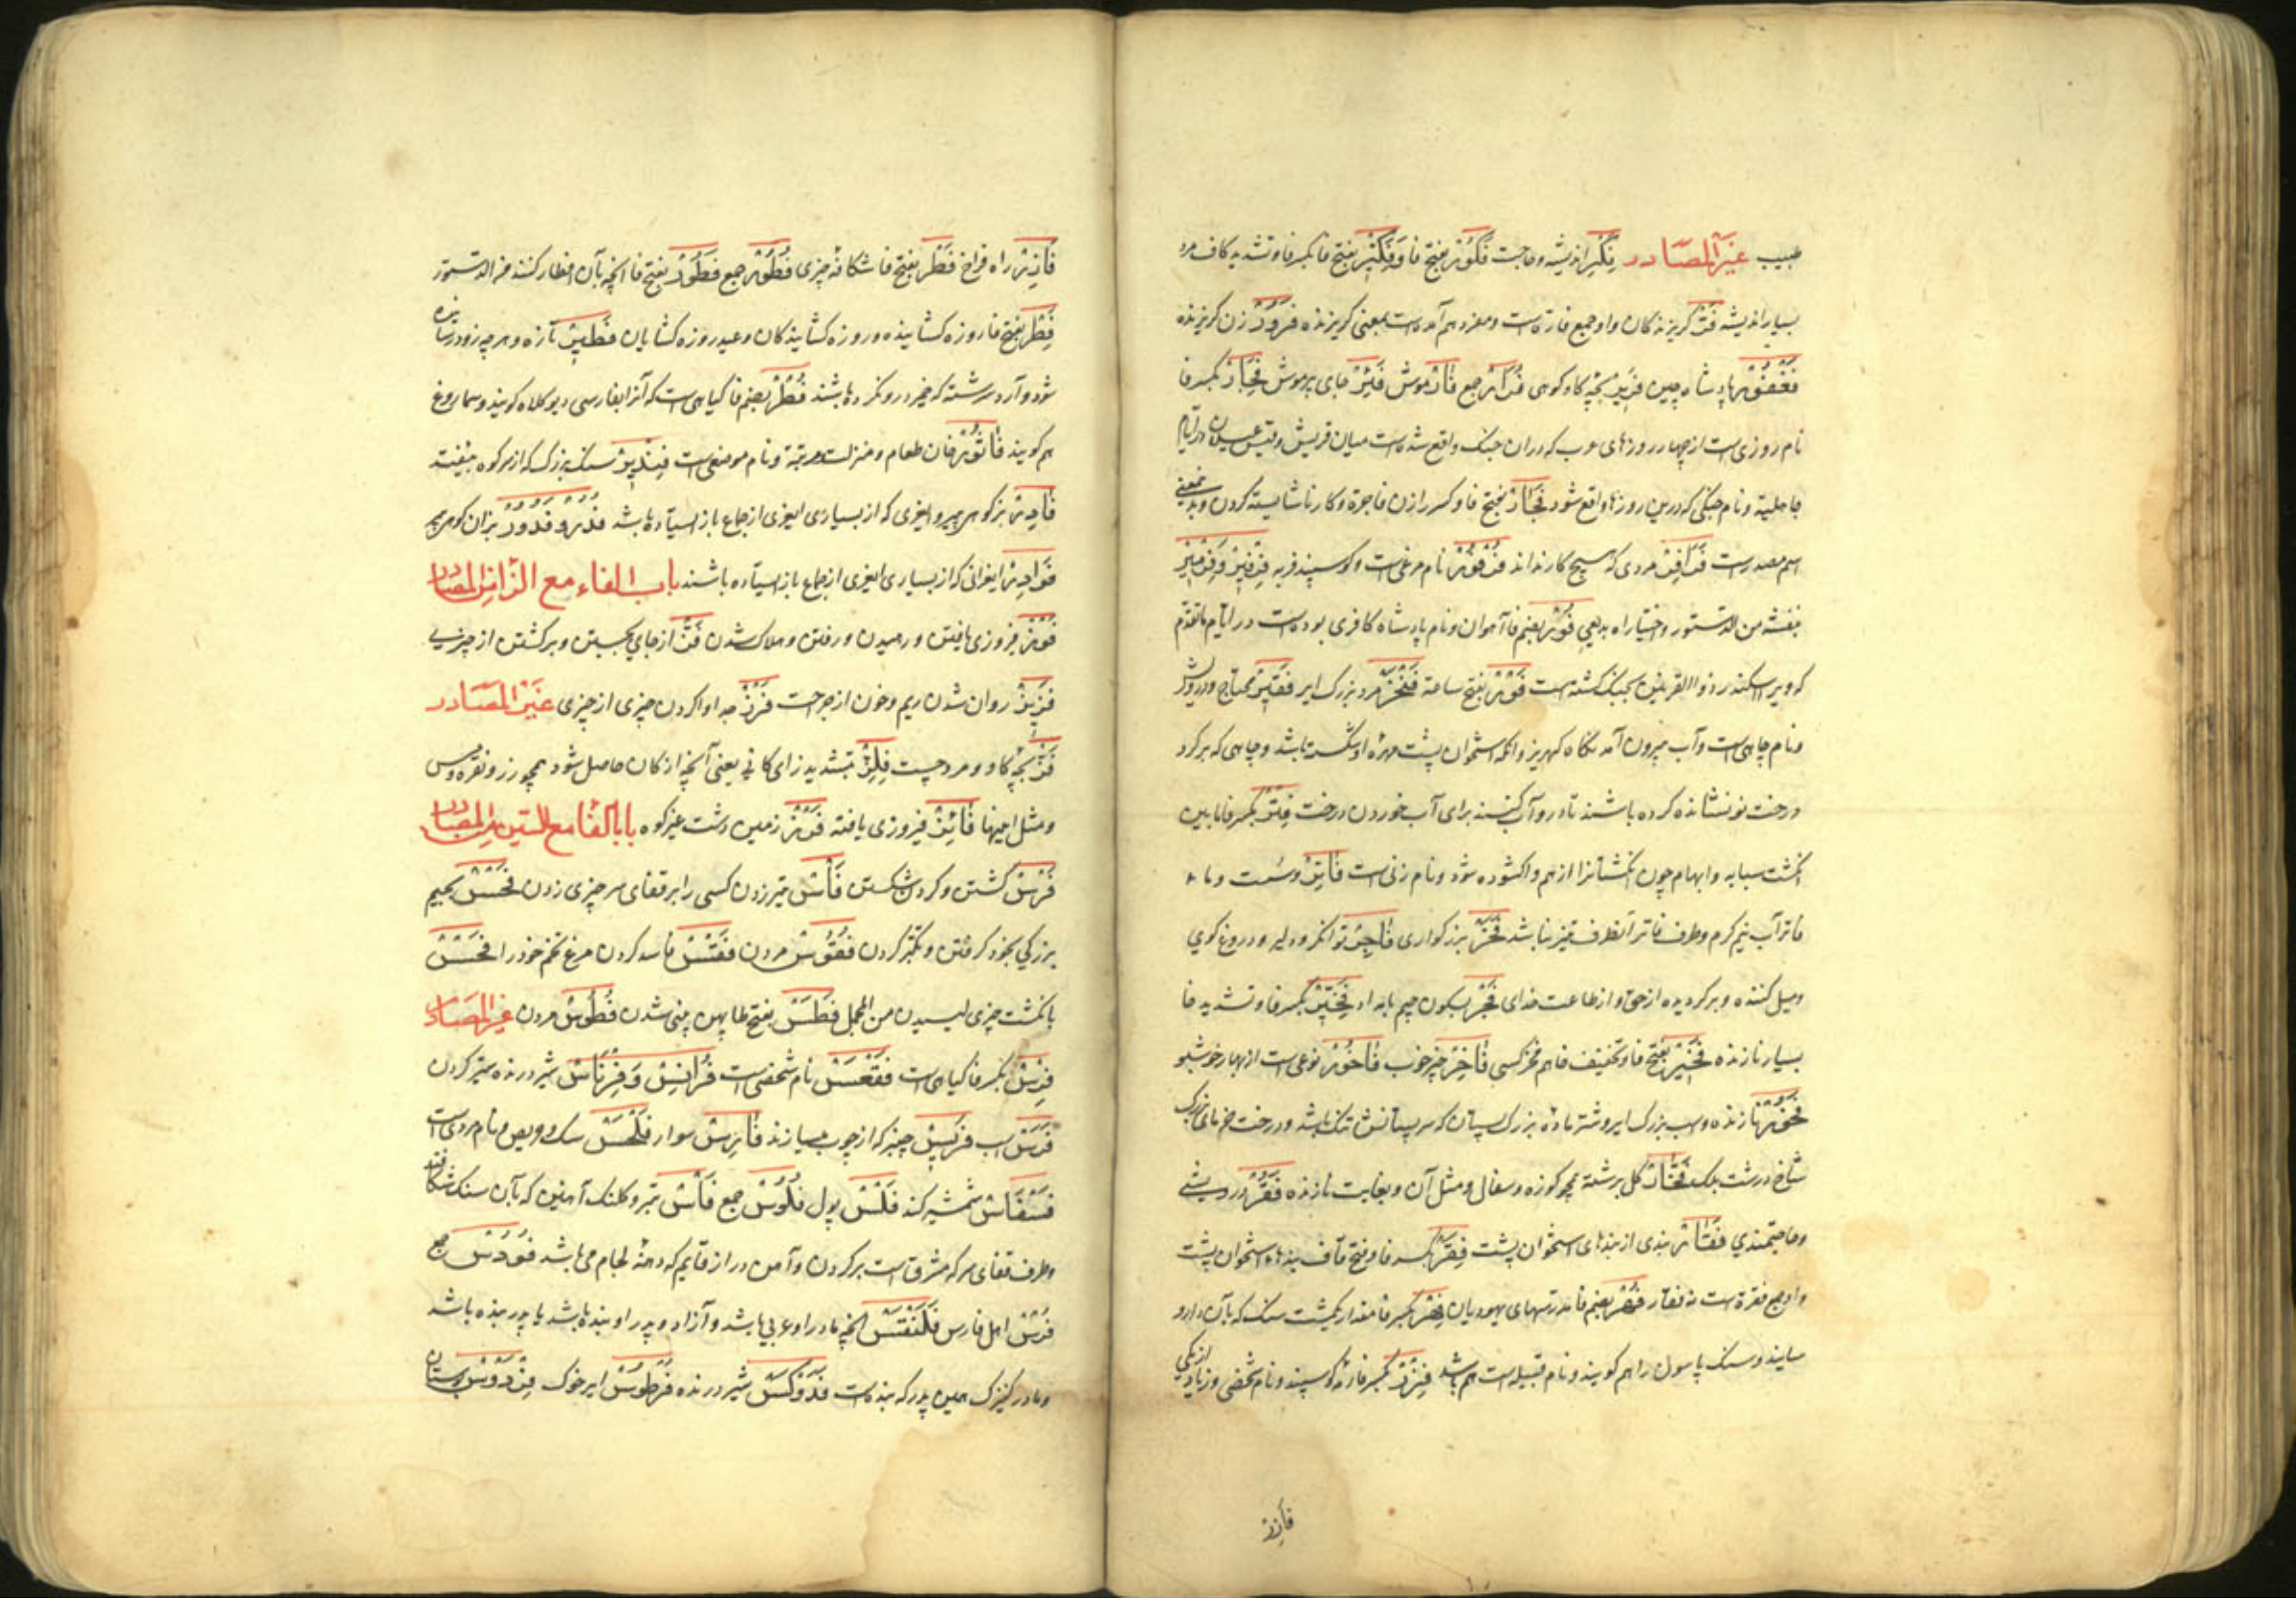 طبیب غیر المصادر فکر اندیشه و حاجت فکور بفتح فا و فکیر بفتح فا بکسر فا و تشدید کاف مرد
بسیار اندیشه فر گریزندگان و او جمع فارة است و مفرد هم آمده است بمعنی گریزنده فرور زن گریزنده
فغفور پادشاه چین فریر بچه گاو کوهی جمع فار موش فئر جای پر موش فجار بکسر فا
نام روزی است از چهار روزهای عرب که در آن جنگ واقع شده است میان قریش و قیس عیلان در ایام
جاهلیة و نام جنگی که درین روزها واقع شود فجار بفتح فا و کسر را زن فاجرة و کار ناشایسته کردن و بدین معنی
اسم مصدر است مردی که هیچ کار نداند نام مرغی است و گوسپند فربه
بنفشه من الدستور و اختیارات بدیعی فور بضم فا آهوان و نام پادشاه کافری بوده است در ایام ماتقدم
که ویرا اسکندر ذوالقرنین بجنگ کشته است فور بفتح ساعة مرد بزرگ ایر فقیر محتاج و درویش
و نام چاهی است و آب بیرون آمدنگاه کهریز و آنکه استخوان پشت مهره او شکسته باشد و چاهی که بر گرد
درخت نو نشانده کرده باشند تا در او آب کنند برای آب خوردن درخت فتر بکسر فا ما بین
انگشت سبابه و ابهام چون انگشتانرا از هم واگشوده شود و نام زنی است فاتر و سست و ماء
فاتر آب نیم گرم و طرف فاتر آنطرف تیز نباشد فخر بزرگواری فاجر توانگر و دلیه و دروغ گوی
و میل کننده و برگردیده از حق و از طاعت خدای فجر بسکون جیم بامداد فخیر بکسر فا و تشدید خا
بسیار نازنده فخیر بفتح فا و تخفیف خا هم فخر کسی فاخر چیز خوب فاخور نوعی است از بهار خوشبو
فخور نازنده و اسب بزرگ ایر و شتر ماده بزرگ پستان که سر پستانش تنگ باشد و درخت خرمای بزرگ
شاخ درشت بلک فخار گل برشته همچو کوزه و سفال و مثل آن و بغایت نازنده فقر درویشی
و حاجتمندی فقار بندی از بندهای استخوان پشت فقر بکسر فا و فتح قاف بندهاء استخوان پشت
و او جمع فقرة است نه فقار فهر بضم فا مدرسهای یهودیان فهر بکسر فا مقدار یکمشت سنگ که بآن دارو
سایند و سنگ پاسول را هم گویند و نام قبیله است هم باشد فزر بکسر فا رمه گوسپند و نام شخصی و زیادتی از یکی
فازر
فازر راه فراخ فطر بفتح فا شکافه چیزی فطور جمع فطور بفتح فا آنچه بآن افطار کنند من الدستور
فطر بفتح فا روزه گشاینده و روزه گشایندگان و عید روزه گشایان فطیر تازه و هر چه زود رسانیده
شود و آرد سرشته که خمیر درو نکرده باشند فطر بضم فا گیاهی است که آنرا بفارسی دیو کلاه گویند و سماروغ
هم گویند فاثور خان طعام و منزلت و مرتبة و نام موضعی است فندیر سنگ بزرگ که از سر کوه بیفتد
فادر بز کوهی پیر و ایغری که از بسیاری ایغری از جماع باز ایستاده باشد فدر و فدور بزان کوهی پیر
فوادر ایغرانی که از بسیاری ایغری از جماع باز ایستاده باشند باب الفاء مع الزا من المصادر
فوز فیروزی یافتن و رهیدن و رفتن و هلاک شدن فز از جای بجستن و برگشتن از چیزی
فزیز روان شدن ریم و خون از جراحت فرز جدا واکردن چیزی از چیزی غیر المصادر
فز بچه گاو و مرد چست فلز بتشدید زای کانی یعنی آنچه از کان حاصل شود همچو زر و نقره و مس
و مثل اینها فائز فیروزی یافته فوز زمین دشت غیر کوه باب الفا مع السین من المصادر
فرس کشتن و گردن شکستن فاس تبر زدن کسی را بر قفای سر چیزی زدن فجس بجیم
بزرگی بخود گرفتن و تکبر کردن فقوس مردن فقس فاسد کردن مرغ تخم خود را
بانگشت چیزی لیسیدن من المجمل فطس بفتح طا پهن بینی شدن فطوس مردن غیر المصادر
فرس بکسر فا گیاهی است فقعس نام شخصی است فرانس و فرناس شیر درنده ستبر گردن
فرس اسب فریس چنبر که از چوب میسازند فارس سوار فلحس سگ و حریص و نام مردی است
فسفاس شمشیر کند فلس پول فلوس جمع فاس تبر و کلنگ آهنین که بآن سنگ شکافند
و طرف قفای سر که مشرق است بر گردن و آهن دراز قایم که در دهنه لجام می باشد فووس جمع
فرس اهل فارس فلنقس آنچه مادر او عربی باشد و آزاد و پدر او بنده باشد یا پدر بنده باشد
و مادر کنیزک همین پدر که بنده است فدوکس شیر درنده فرطوس ایر خوک فردوس بوستان